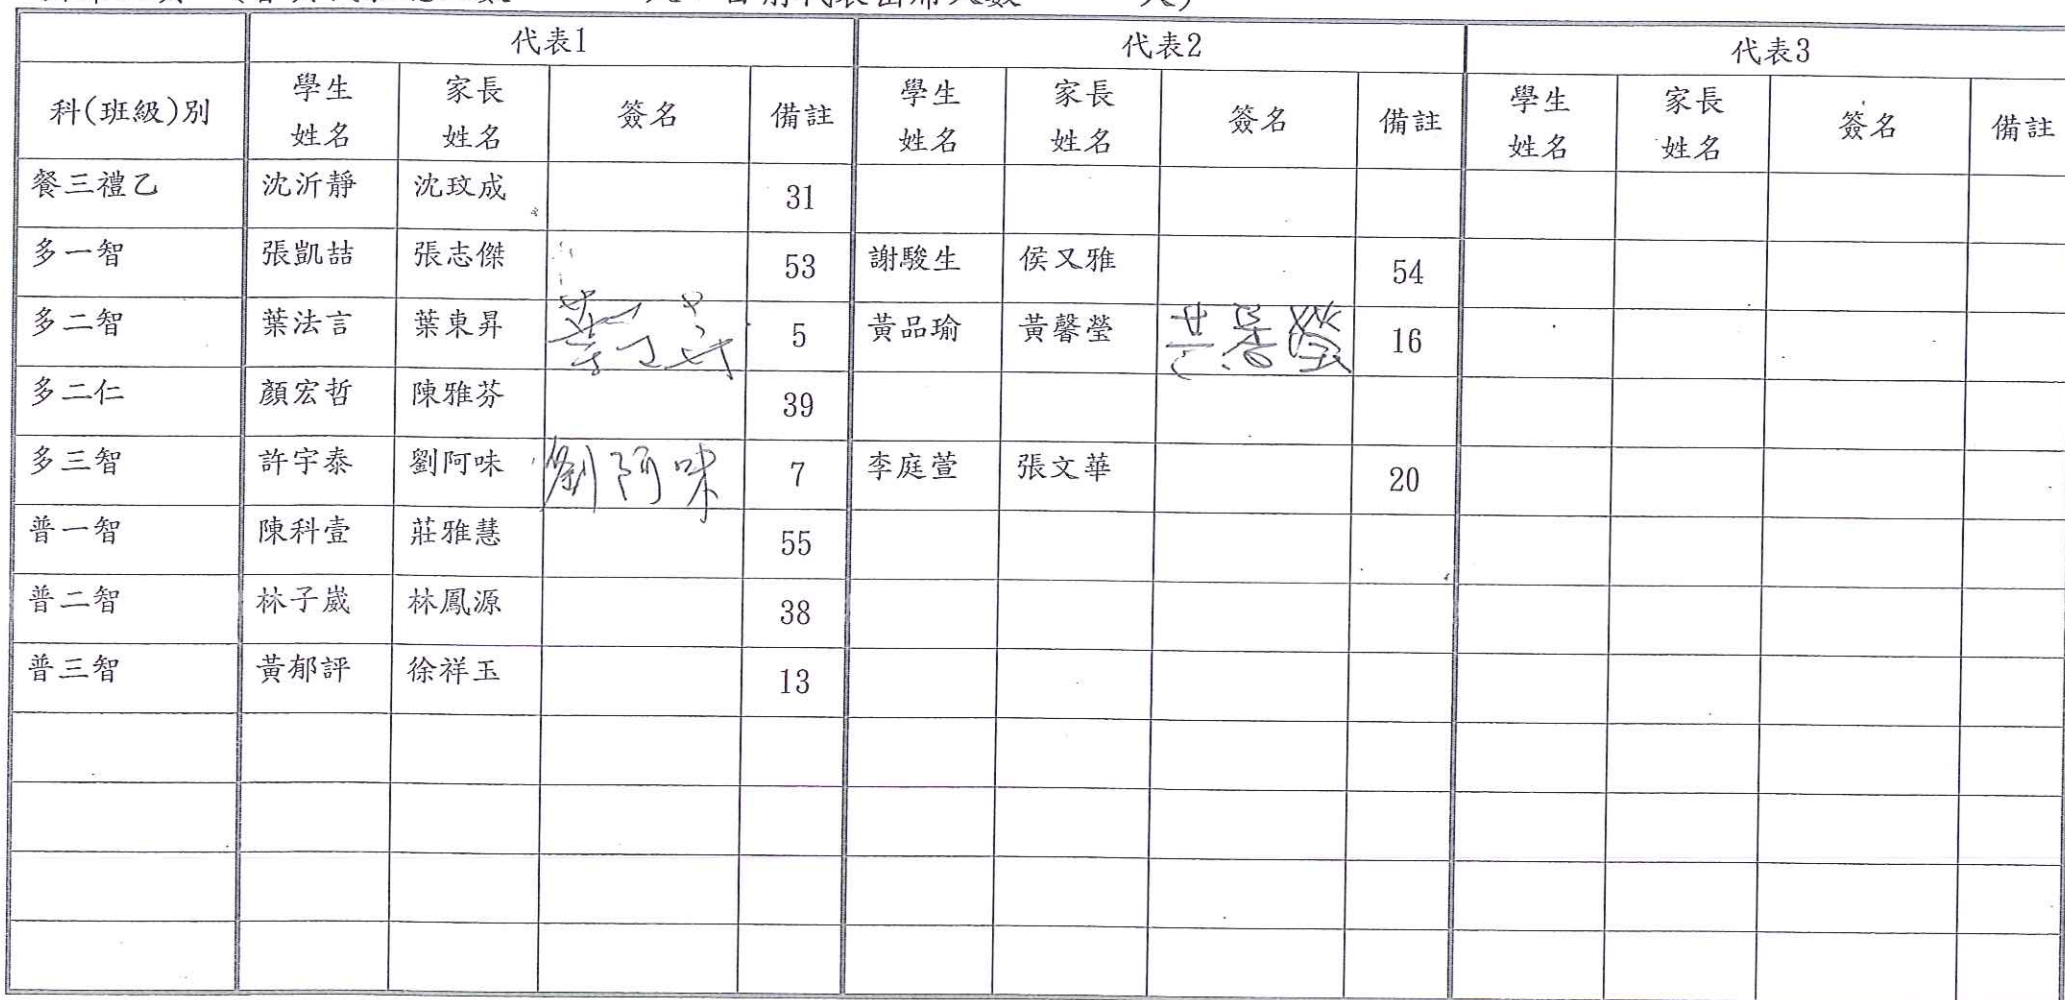 代表1 代表2 代表3
科(班級)別 學生姓名 家長姓名 簽名 備註 學生姓名 家長姓名 簽名 備註 學生姓名 家長姓名 簽名 備註
餐三禮乙 沈沂靜 沈玟成 31
多一智 張凱喆 張志傑 53 謝駿生 侯又雅 54
多二智 葉法言 葉東昇 5 黃品瑜 黃馨瑩 黃馨瑩 16
多二仁 顏宏哲 陳雅芬 39
多三智 許宇泰 劉阿味 劉阿味 7 李庭萱 張文華 20
普一智 陳科壹 莊雅慧 55
普二智 林子崴 林鳳源 38
普三智 黃郁評 徐祥玉 13